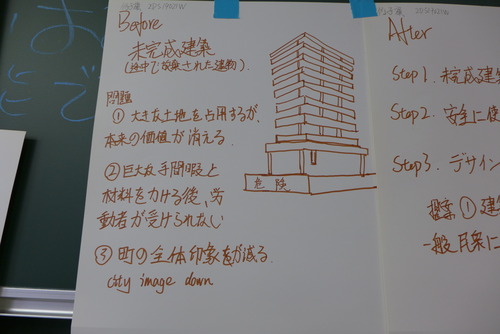 Before
未完成建築
(途中で放棄された建物)
問題
① 大きな土地を占用するが、
本来の価値が消える。
② 巨大な手間暇と
材料をかける後、労
動者が受けられない
③ 町の全体印象をが減る
city image down
危険
After
Step 1. 未完成建築
Step 2. 安全に使
Step 3. デザイン
提案 ① 建
一般民衆に